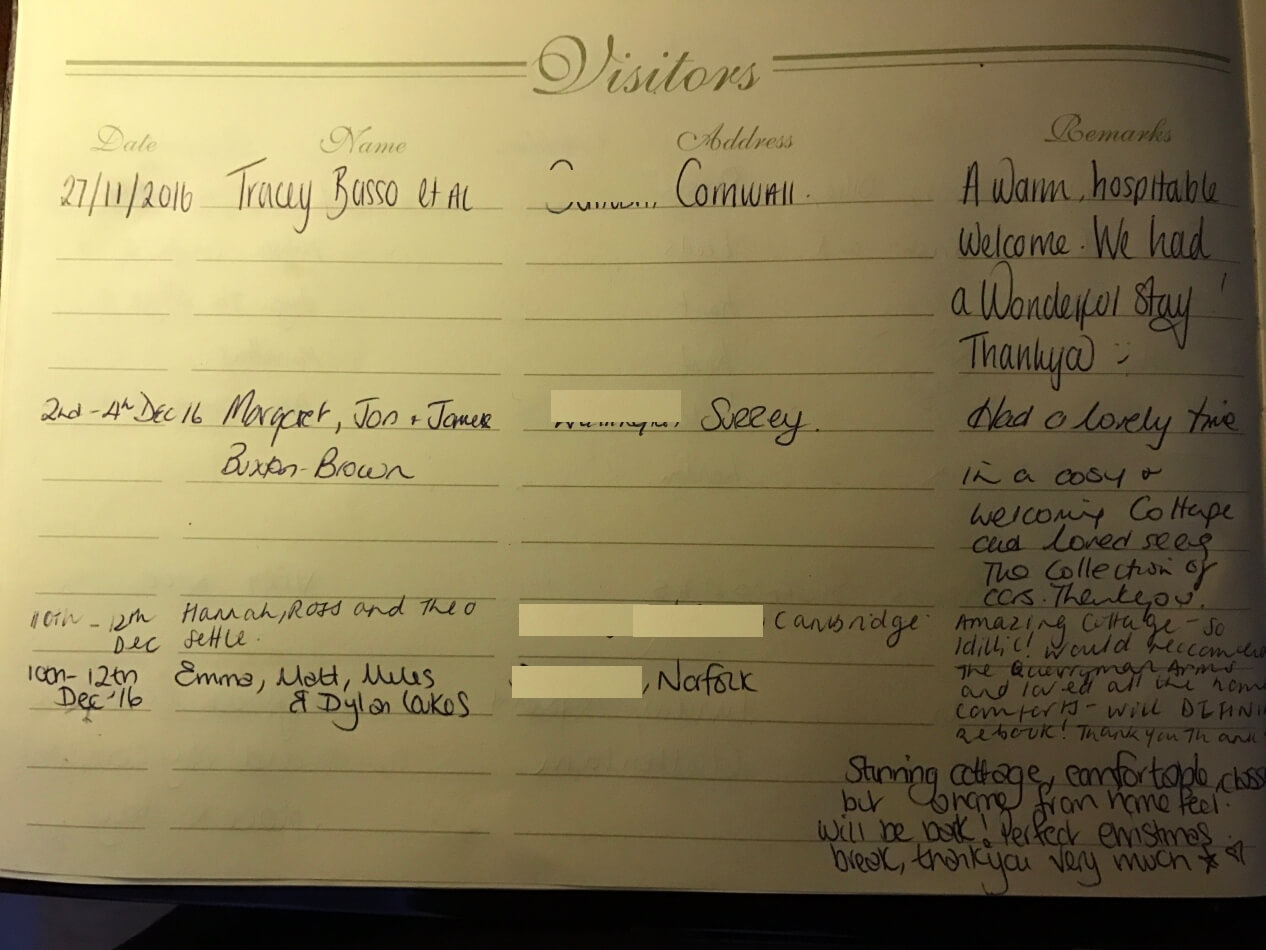 Visitors
Date Name Address Remarks
27/11/2016 Tracey Basso et AL Cornwall. A warm, hospitable
welcome. We had
a Wonderful Stay !
Thankyou :)
2nd - 4th DEC 16 Margaret, Jon + James Surrey. Had a lovely time
Buxton-Brown in a cosy &
welcoming Cottage
and loved seeing
The Collection of
cars. Thankyou.
10th - 12th Hannah, Ross and Theo Cambridge. Amazing Cottage - so
Dec Settle. Idillic! Would reccomend
10th - 12th Emma, Matt, Miles , Norfolk The Quarryman Arms
Dec '16 & Dylan Oakes and loved all the home
comforts - will DEFINI
rebook! Thankyou Thank
Stunning cottage, comfortable, classy
but home from home feel.
will be back! Perfect christmas
break, thankyou very much